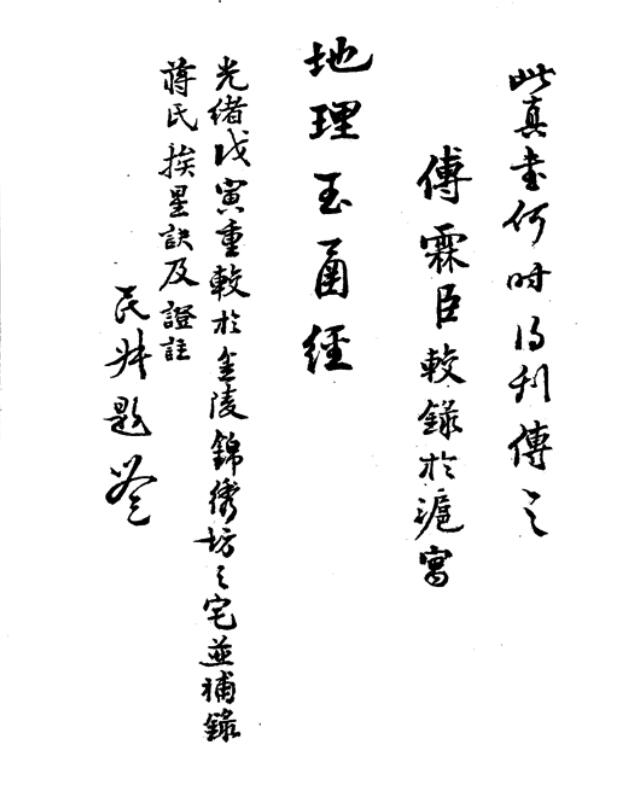 此真書何时得刊傳之
傅霖臣較錄於滬寓
地理玉函經
光緒戊寅重較於金陵錦衖坊之宅並補錄
蔣氏挨星訣及證註
題